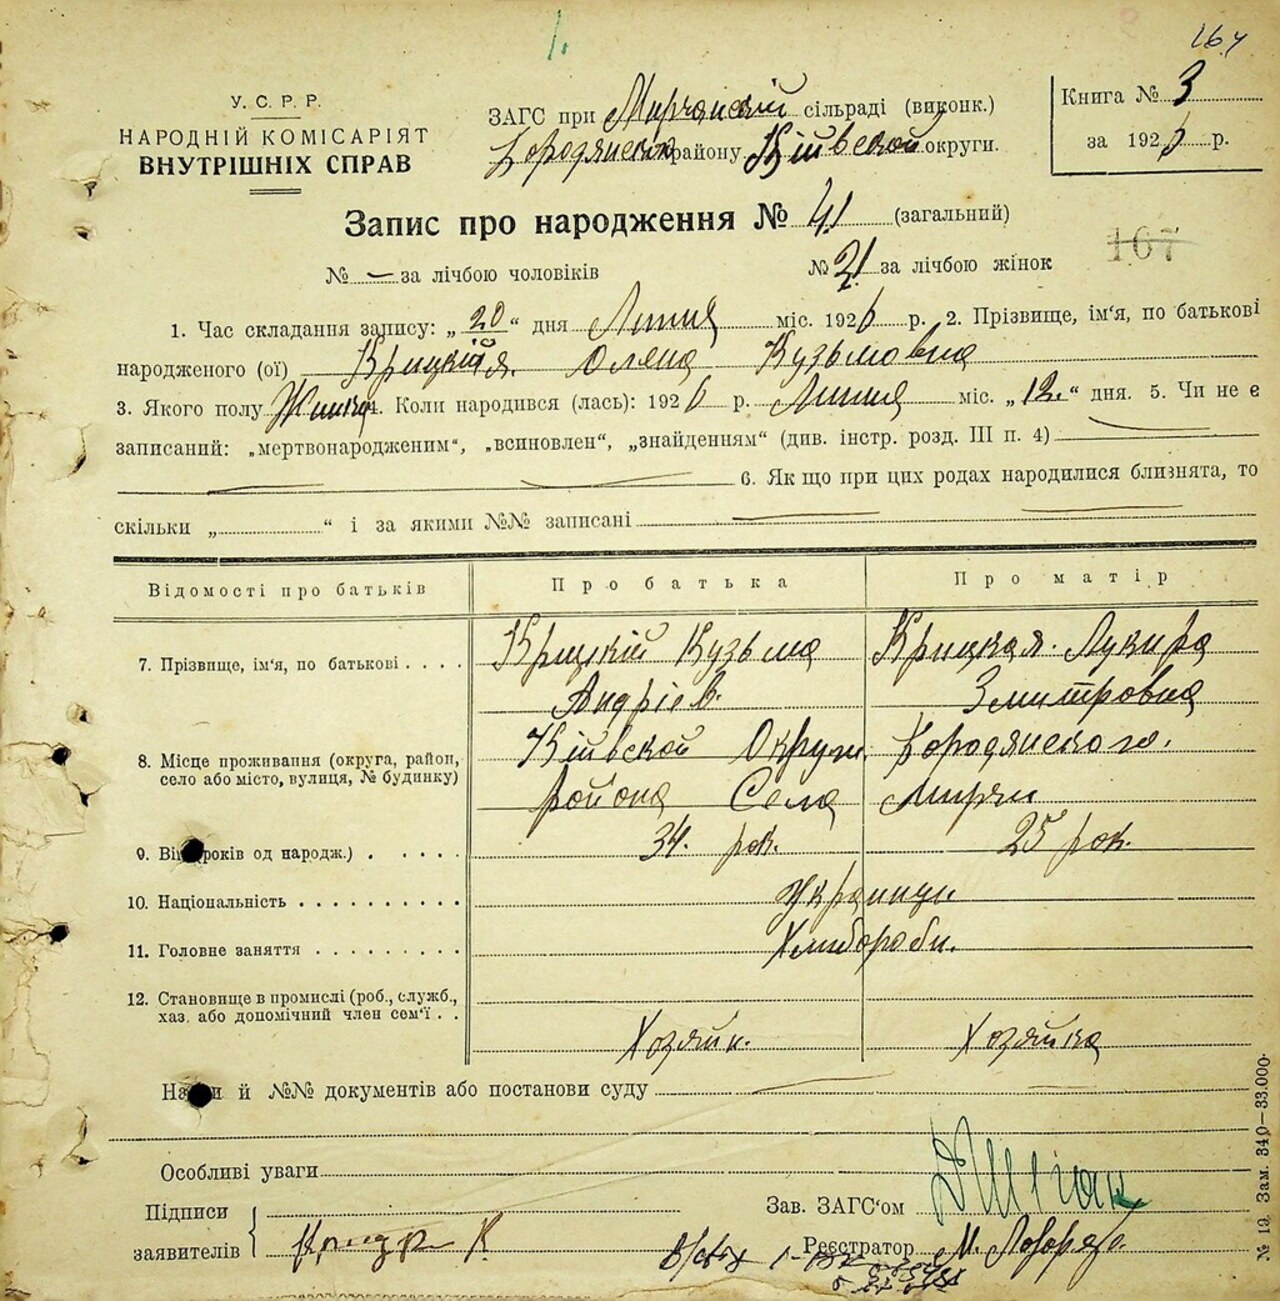 164
У. С. Р. Р.
НАРОДНІЙ КОМІСАРІЯТ
ВНУТРІШНІХ СПРАВ
ЗАГС при Мирчанскій сільраді (виконк.)
Бородянском району Київской округи.
Книга № 3
за 1926 р.
Запис про народження № 41 (загальний)
№ — за лічбою чоловіків № 21 за лічбою жінок
167
1. Час складання запису: „20“ дня Липня міс. 1926 р. 2. Прізвище, ім'я, по батькові
народженого (ої) Крицкія Олена Кузьмовна
3. Якого полу Жинка 4. Коли народився (лась): 1926 р. Липня міс. „12.“ дня. 5. Чи не є
записаний: „мертвонародженим“, „всиновлен“, „знайденням“ (див. інстр. розд. III п. 4)
6. Як що при цих родах народилися близнята, то
скільки „ “ і за якими №№ записані
Відомості про батьків Про батька Про матір
7. Прізвище, ім'я, по батькові . . . . Крицкій Кузьма Крицкая. Лукира
Андріев. Змитровна
8. Місце проживання (округа, район, село або місто, вулиця, № будинку) Київской Округи. Бородянского.
района Села Мирчи
9. Вік років од народж.) . . . . . 34. рок. 25 рок.
10. Національність . . . . . . . . . . Украинци.
11. Головне заняття . . . . . . . . . Хлибороби.
12. Становище в промислі (роб., служб.,
хаз. або допомічний член сем'ї . . Хозяин. Хозяйка
Назви й №№ документів або постанови суду
Особливі уваги
Підписи
заявителів
Зав. ЗАГС'ом
Реєстратор М.
№ 19. Зам. 340—33.000.